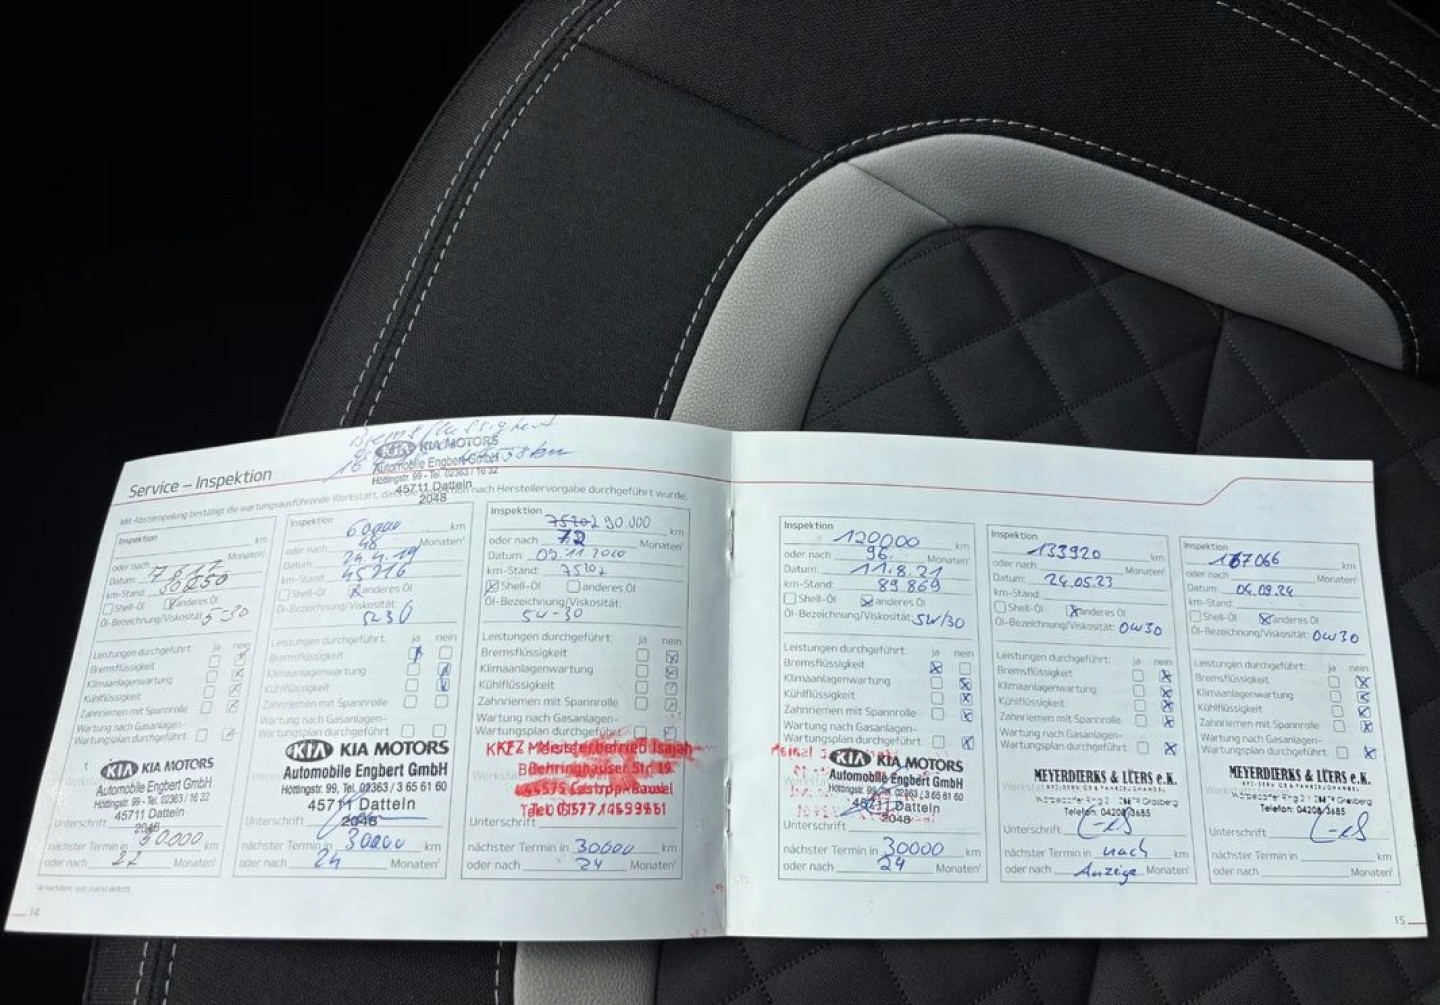 Bremsflüssigkeit
KIA KIA MOTORS
Automobile Engbert GmbH
Höttingstr. 99 - Tel. 02363 / 16 32
45711 Datteln
2048
Service – Inspektion
Mit Abstempelung bestätigt die wartungsausführende Werkstatt, nach Herstellervorgabe durchgeführt wurde.
Inspektion km
oder nach Monaten¹
Datum: 7.6.17
km-Stand: 30850
Shell-Öl anderes Öl
Öl-Bezeichnung/Viskosität: 5-30
Leistungen durchgeführt: ja nein
Bremsflüssigkeit
Klimaanlagenwartung
Kühlflüssigkeit
Zahnriemen mit Spannrolle
Wartung nach Gasanlagen-
Wartungsplan durchgeführt
KIA KIA MOTORS
Automobile Engbert GmbH
Höttingstr. 99 - Tel. 02363 / 16 32
45711 Datteln
2048
Unterschrift
nächster Termin in 30.000 km
oder nach 22 Monaten¹
14
Inspektion 60000 km
oder nach 48 Monaten¹
Datum: 24.4.19
km-Stand: 45716
Shell-Öl anderes Öl
Öl-Bezeichnung/Viskosität:
5W30
Leistungen durchgeführt: ja nein
Bremsflüssigkeit
Klimaanlagenwartung
Kühlflüssigkeit
Zahnriemen mit Spannrolle
Wartung nach Gasanlagen-
Wartungsplan durchgeführt
KIA KIA MOTORS
Automobile Engbert GmbH
Höttingstr. 99, Tel. 02363 / 3 65 61 60
45711 Datteln
2048
Unterschrift
nächster Termin in 30000 km
oder nach 24 Monaten¹
Inspektion 75201 90.000 km
oder nach 72 Monaten¹
Datum: 09.11.2020
km-Stand: 75201
Shell-Öl anderes Öl
Öl-Bezeichnung/Viskosität:
5W-30
Leistungen durchgeführt: ja nein
Bremsflüssigkeit
Klimaanlagenwartung
Kühlflüssigkeit
Zahnriemen mit Spannrolle
Wartung nach Gasanlagen-
Wartungsplan durchgeführt
KFZ-Meisterbetrieb Isajah
Behringhauser Str. 19
44575 Castrop-Rauxel
Tel.
Unterschrift
nächster Termin in 30000 km
oder nach 24 Monaten¹
Inspektion 120000 km
oder nach 96 Monaten¹
Datum: 11.8.21
km-Stand: 89.869
Shell-Öl anderes Öl
Öl-Bezeichnung/Viskosität: 5W/30
Leistungen durchgeführt: ja nein
Bremsflüssigkeit
Klimaanlagenwartung
Kühlflüssigkeit
Zahnriemen mit Spannrolle
Wartung nach Gasanlagen-
Wartungsplan durchgeführt
KIA KIA MOTORS
Automobile Engbert GmbH
Höttingstr. 99, Tel. 02363 / 3 65 61 60
45711 Datteln
2048
Unterschrift
nächster Termin in 30000 km
oder nach 24 Monaten¹
Inspektion 133920 km
oder nach Monaten¹
Datum: 24.05.23
km-Stand:
Shell-Öl anderes Öl
Öl-Bezeichnung/Viskosität: 0W30
Leistungen durchgeführt: ja nein
Bremsflüssigkeit
Klimaanlagenwartung
Kühlflüssigkeit
Zahnriemen mit Spannrolle
Wartung nach Gasanlagen-
Wartungsplan durchgeführt
MEYERDIERKS & LÜERS e.K.
Telefon: 04208/3685
Unterschrift
nächster Termin in nach km
oder nach Anzeige Monaten¹
Inspektion 167066 km
oder nach Monaten¹
Datum: 04.09.24
km-Stand:
Shell-Öl anderes Öl
Öl-Bezeichnung/Viskosität: 0W30
Leistungen durchgeführt: ja nein
Bremsflüssigkeit
Klimaanlagenwartung
Kühlflüssigkeit
Zahnriemen mit Spannrolle
Wartung nach Gasanlagen-
Wartungsplan durchgeführt
MEYERDIERKS & LÜERS e.K.
Telefon: 04208/3685
Unterschrift
nächster Termin in km
oder nach Monaten¹
15